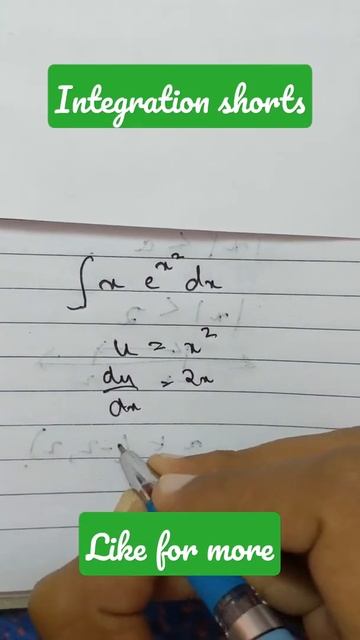 Integration shorts
∫ x e^{x^2} dx
u = x^2
du/dx = 2x
Like for more